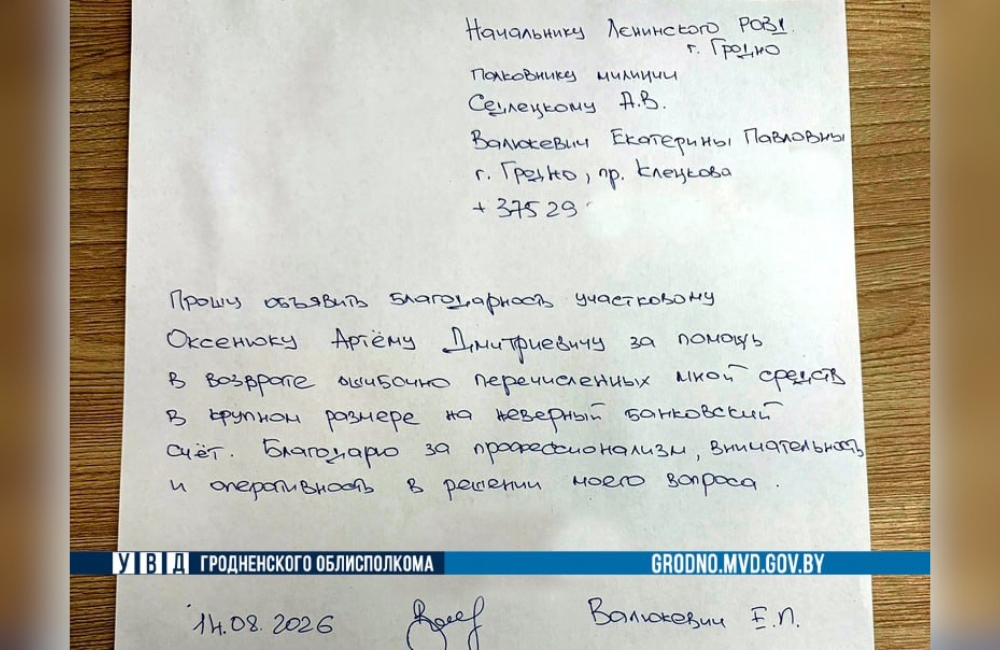 Начальнику Ленинского РОВД
г. Гродно
полковнику милиции
Селлецкому А.В.
Валюкевич Екатерины Павловны
г. Гродно, пр. Клецкова
+ 375 29
Прошу объявить благодарность участковому
Оксенюку Артёму Дмитриевичу за помощь
в возврате ошибочно перечисленных мной средств
в крупном размере на неверный банковский
счёт. Благодарю за профессионализм, внимательность
и оперативность в решении моего вопроса.
УВД ГРОДНЕНСКОГО ОБЛИСПОЛКОМА
GRODNO.MVD.GOV.BY
14.08.2026 Валюкевич Е.П.